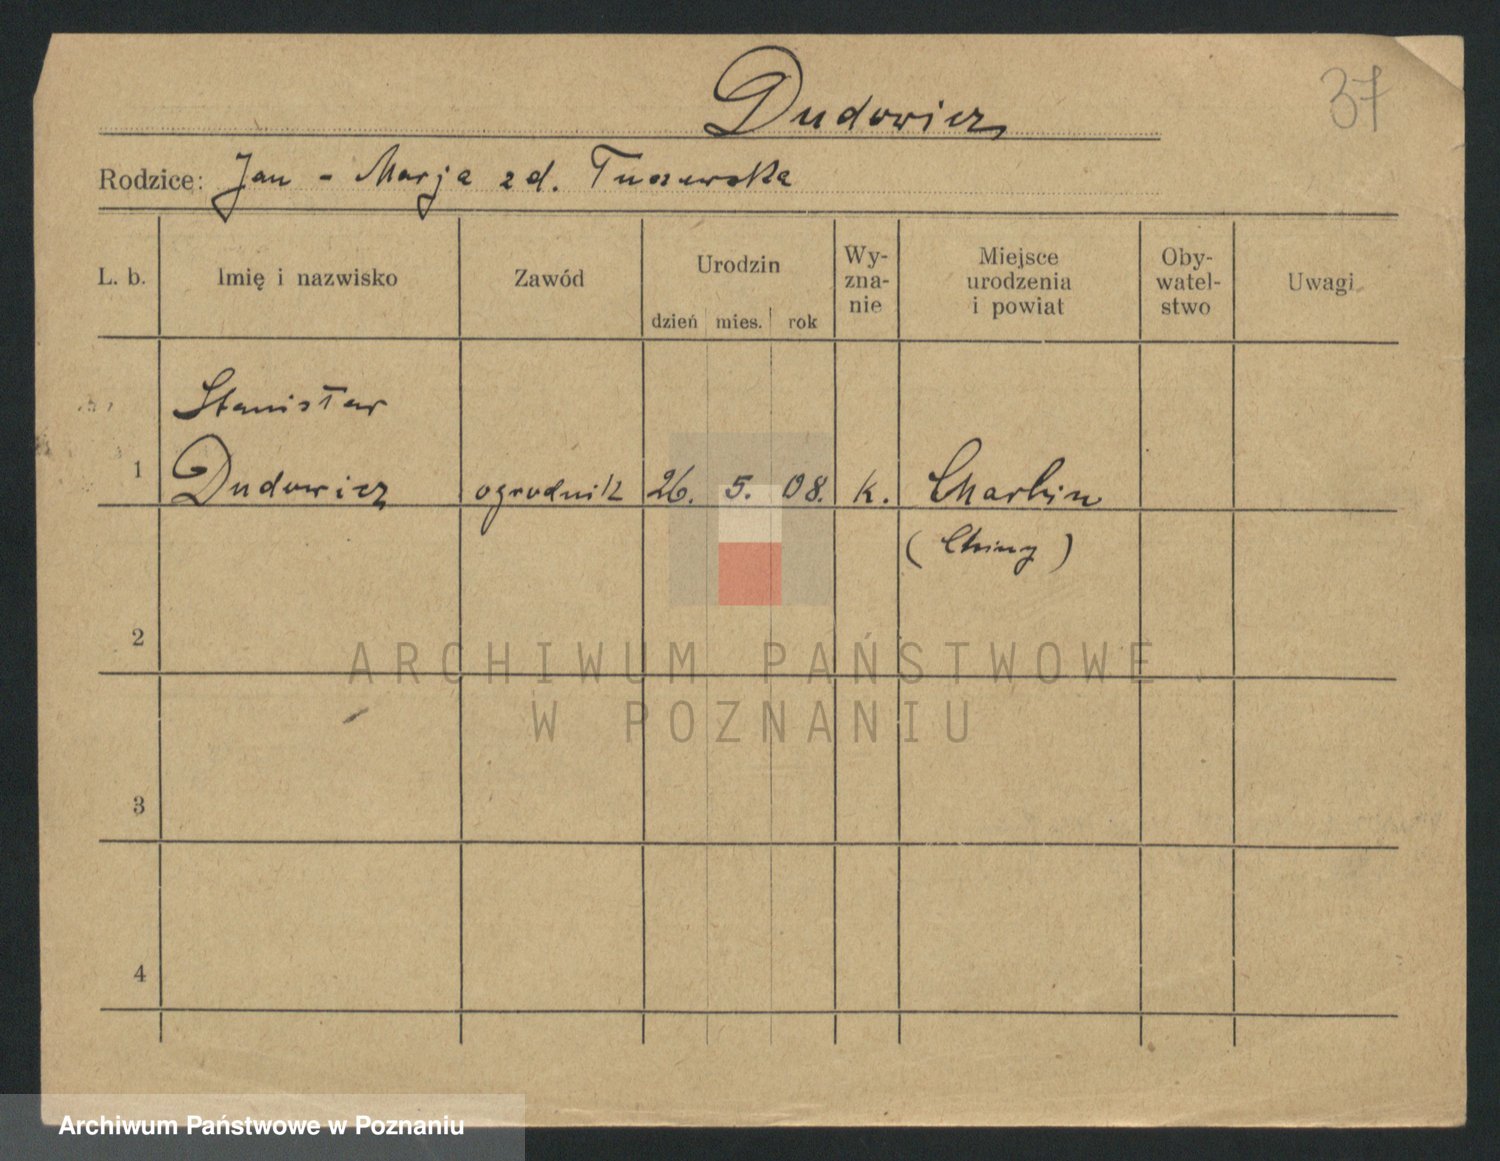 Dudowicz
37
Rodzice: Jan - Marja zd. Tuszewska
L. b. Imię i nazwisko Zawód Urodzin dzień mies. rok Wy-zna-nie Miejsce urodzenia i powiat Oby-watel-stwo Uwagi
Stanisław
1 Dudowicz ogrodnik 26. 5. 08. k. Charbin
(Chiny)
2
ARCHIWUM PAŃSTWOWE
W POZNANIU
3
4
Archiwum Państwowe w Poznaniu